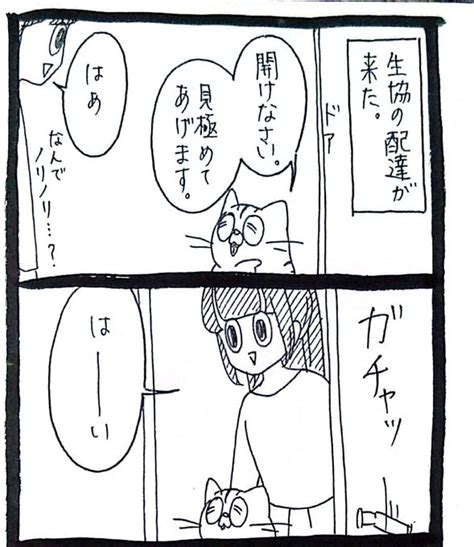 生協の配達が
来た。
ドア
開けなさい。
見極めて
あげます。
はぁ
なんで
ノリノリ…?
ガチャッ
はーい